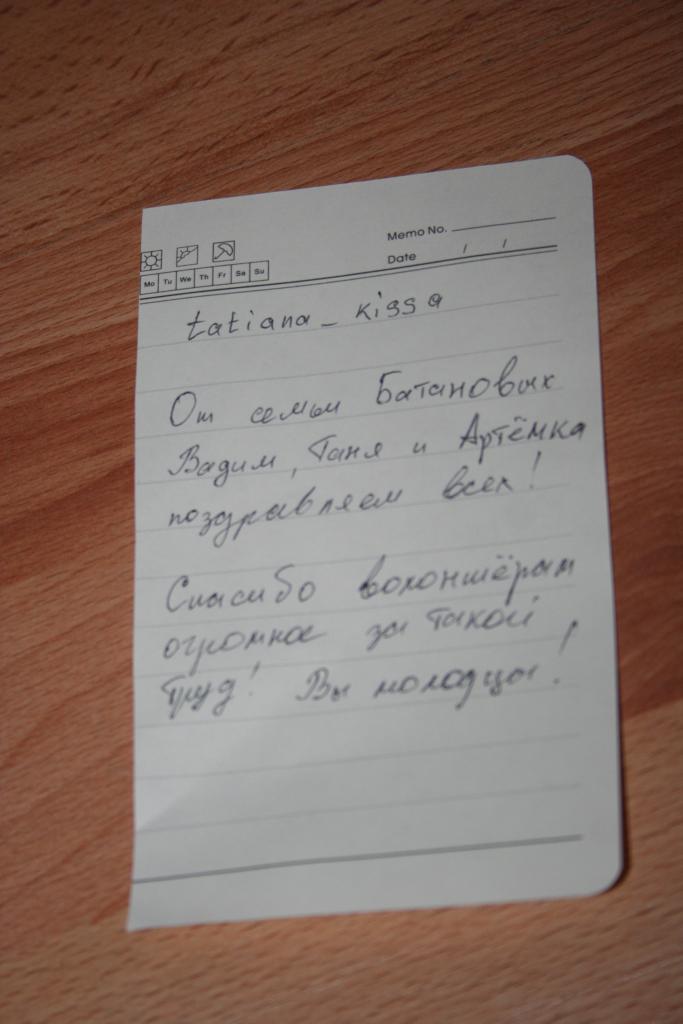 Memo No.
Date / /
Mo Tu We Th Fr Sa Su
tatiana_kissa
От семьи Батановых
Вадим, Таня и Артёмка
поздравляем всех!
Спасибо волонтёрам
огромное за такой
труд! Вы молодцы!